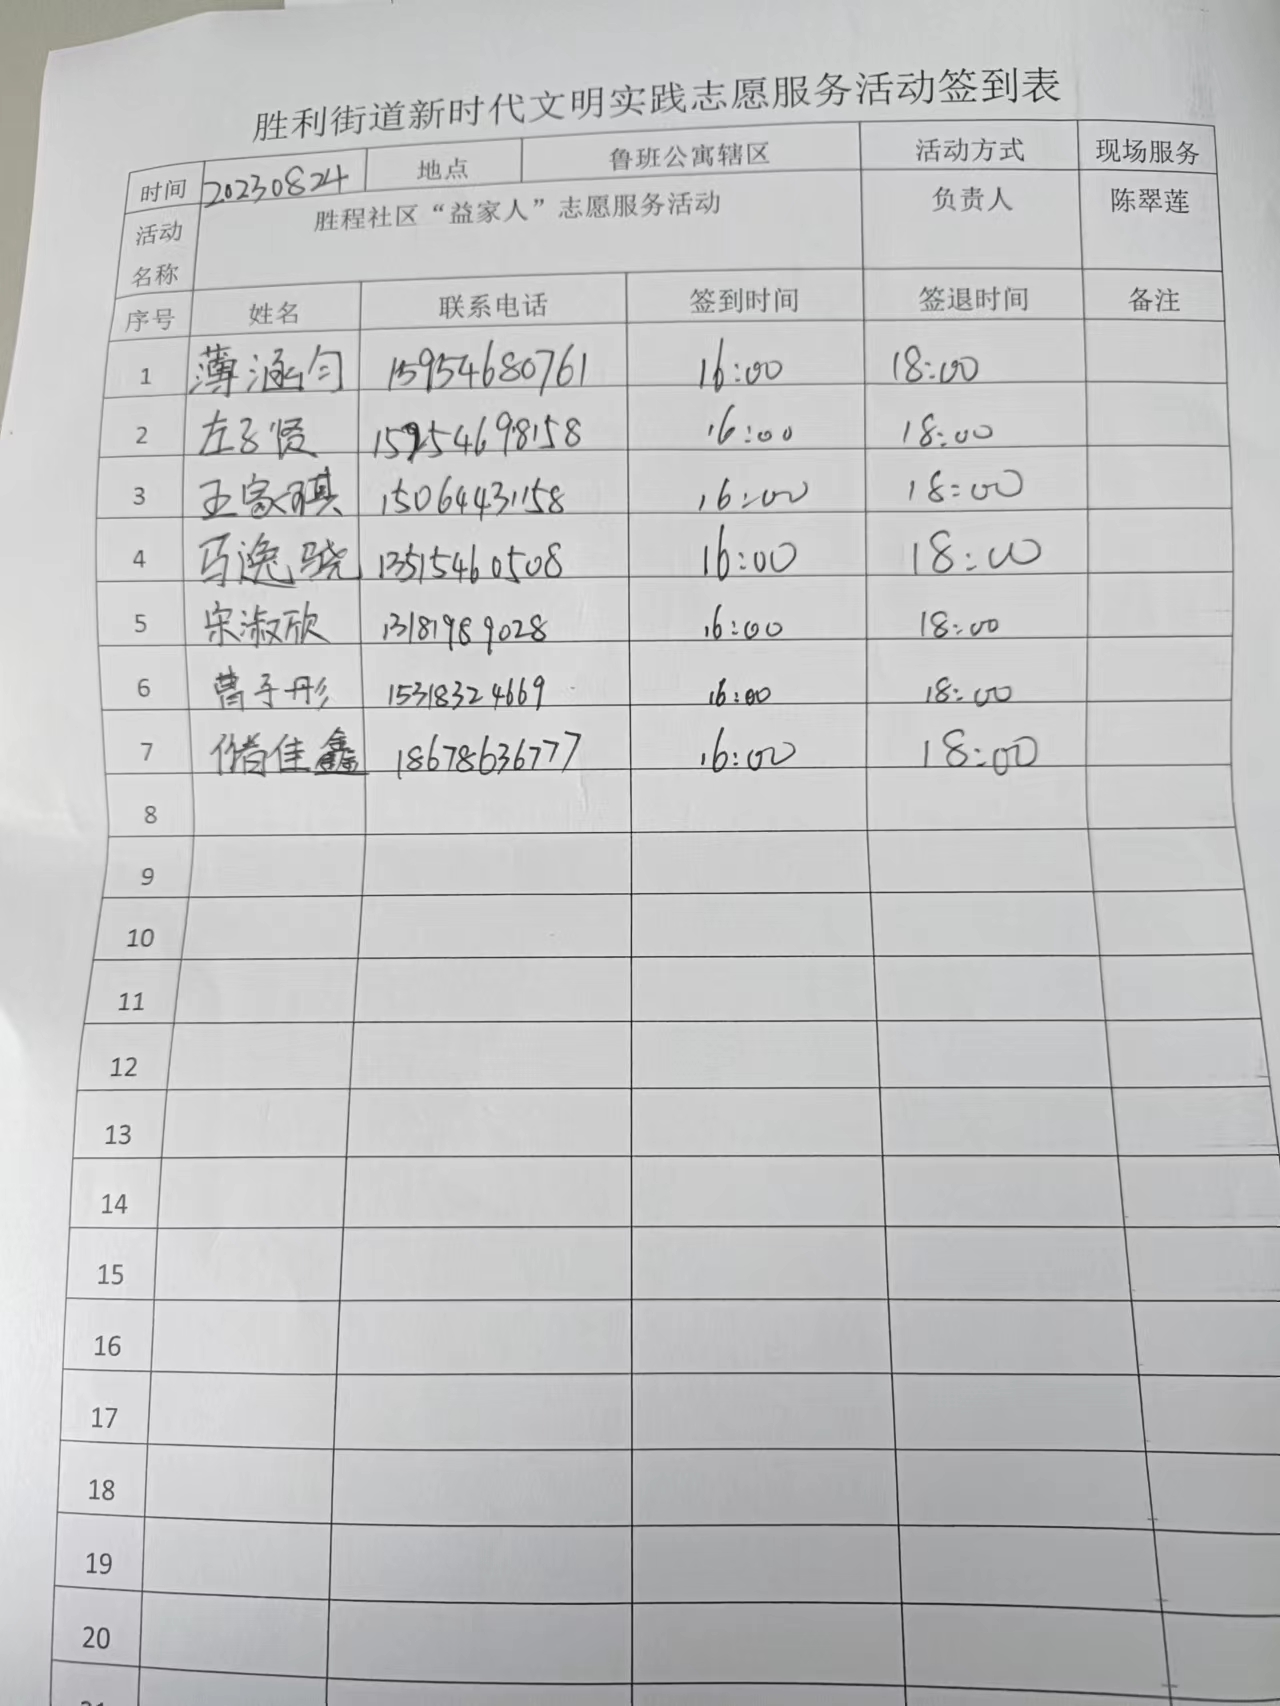 胜利街道新时代文明实践志愿服务活动签到表
时间 20230824 地点 鲁班公寓辖区 活动方式 现场服务
活动名称 胜程社区“益家人”志愿服务活动 负责人 陈翠莲
序号 姓名 联系电话 签到时间 签退时间 备注
1 薄涵匀 15954680761 16:00 18:00
2 左子贤 15954698158 16:00 18:00
3 王家琪 15064431158 16:00 18:00
4 马逸骁 13515460508 16:00 18:00
5 宋淑欣 13181989028 16:00 18:00
6 曹子彤 15318324669 16:00 18:00
7 储佳鑫 18678636777 16:00 18:00
8
9
10
11
12
13
14
15
16
17
18
19
20